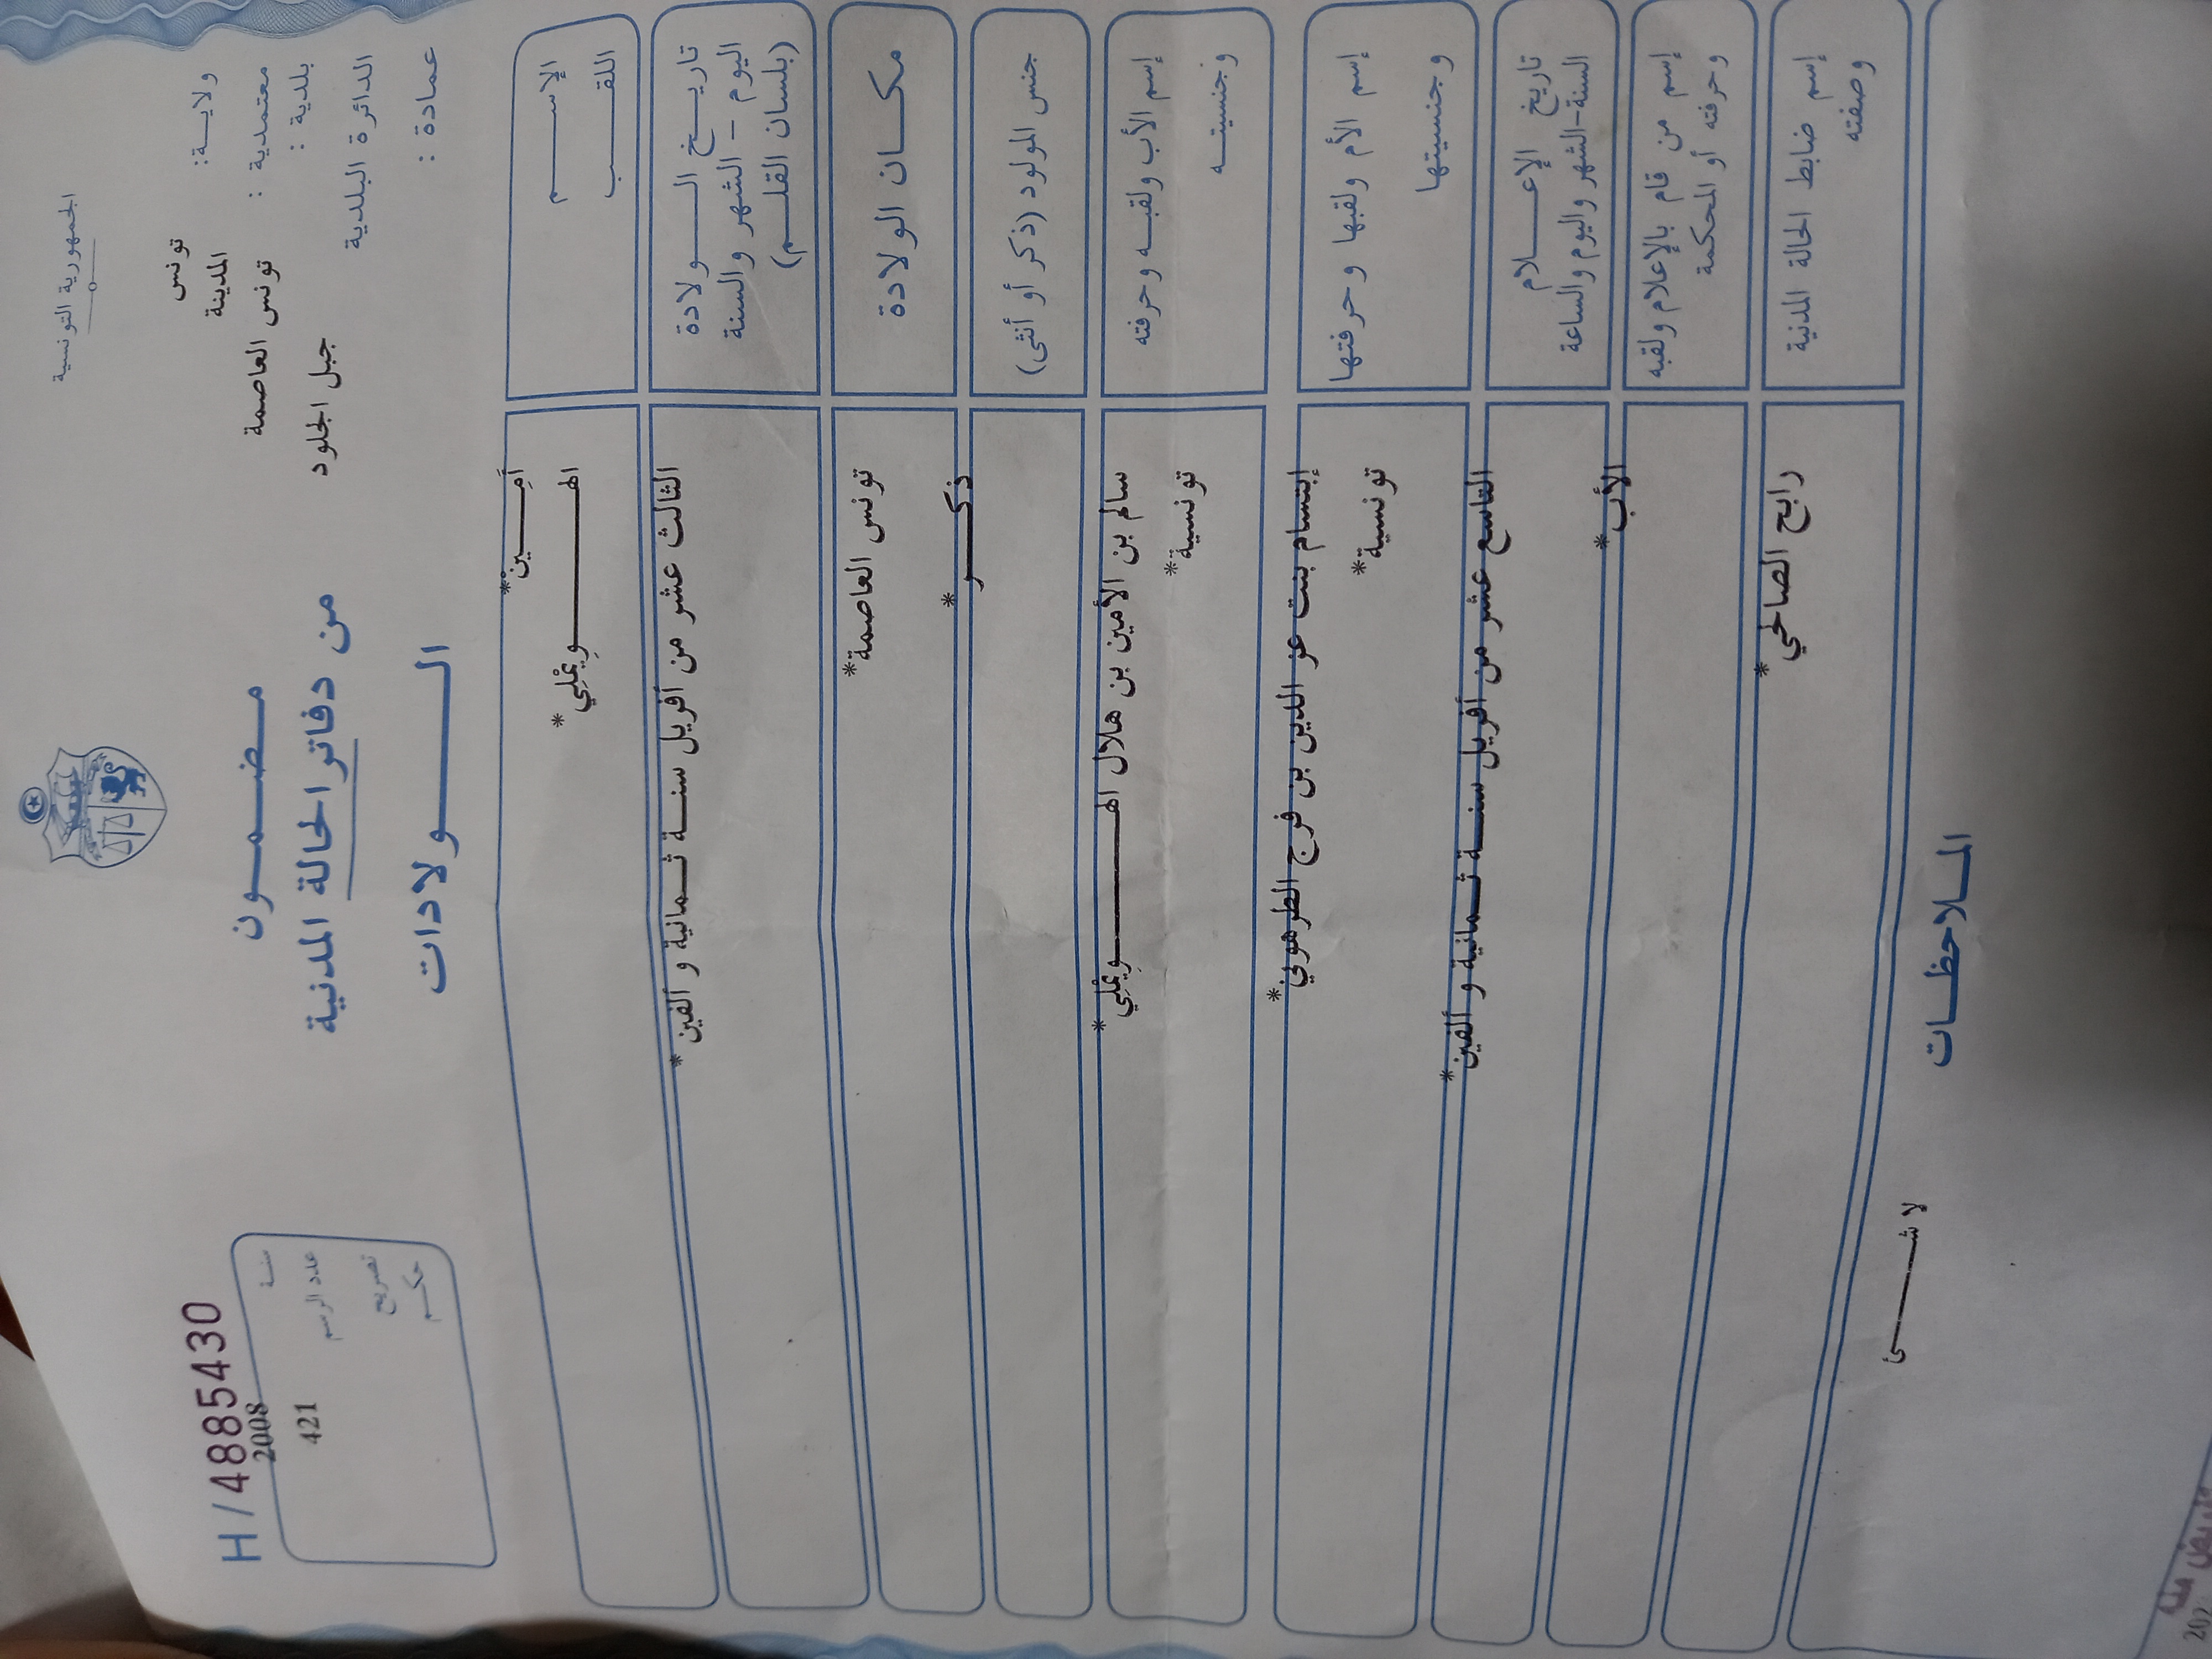 الجمهورية التونسية
H / 4885430
ولايـــة: تونس
معتمدية : المدينة
بلدية : تونس العاصمة
الدائرة البلدية جبل الجلود
عمادة :
مـضـمـون
من دفاتر الحالة المدنية
الـــولادات
سنة 2008
عدد الرسم 421
تصريح
حكـم
الإســـم
اللقـــب
أمِـــين*
الهـــــويمْلِي*
تاريـــخ الـــولادة
اليوم - الشهر والسنة
(بلسان القلـــم)
الثالث عشر من أفريل سنـة ثـمانية و ألفين*
مكـــان الولادة
تونس العاصمة*
جنس المولود (ذكر أو أنثى)
ذكـــر*
إسم الأب ولقبـه وحرفته
وجنسيتـــه
سالم بن الأمين بن هلال الهـــــويمْلِي*
تونسية*
إسم الأم ولقبها وحرفتها
وجنسيتها
إبتسام بنت عز الدين بن فرج الطرهوني*
تونسية*
تاريخ الإعـــلام
السنة-الشهر واليوم والساعة
التاسع عشر من أفريل سنـة ثـمانية و ألفين*
إسم من قام بالإعلام ولقبه
وحرفته أو المحكمة
الأب*
إسم ضابط الحالة المدنية
وصفته
رابح الصالحي*
المـلاحظـات
لا شـــــئ